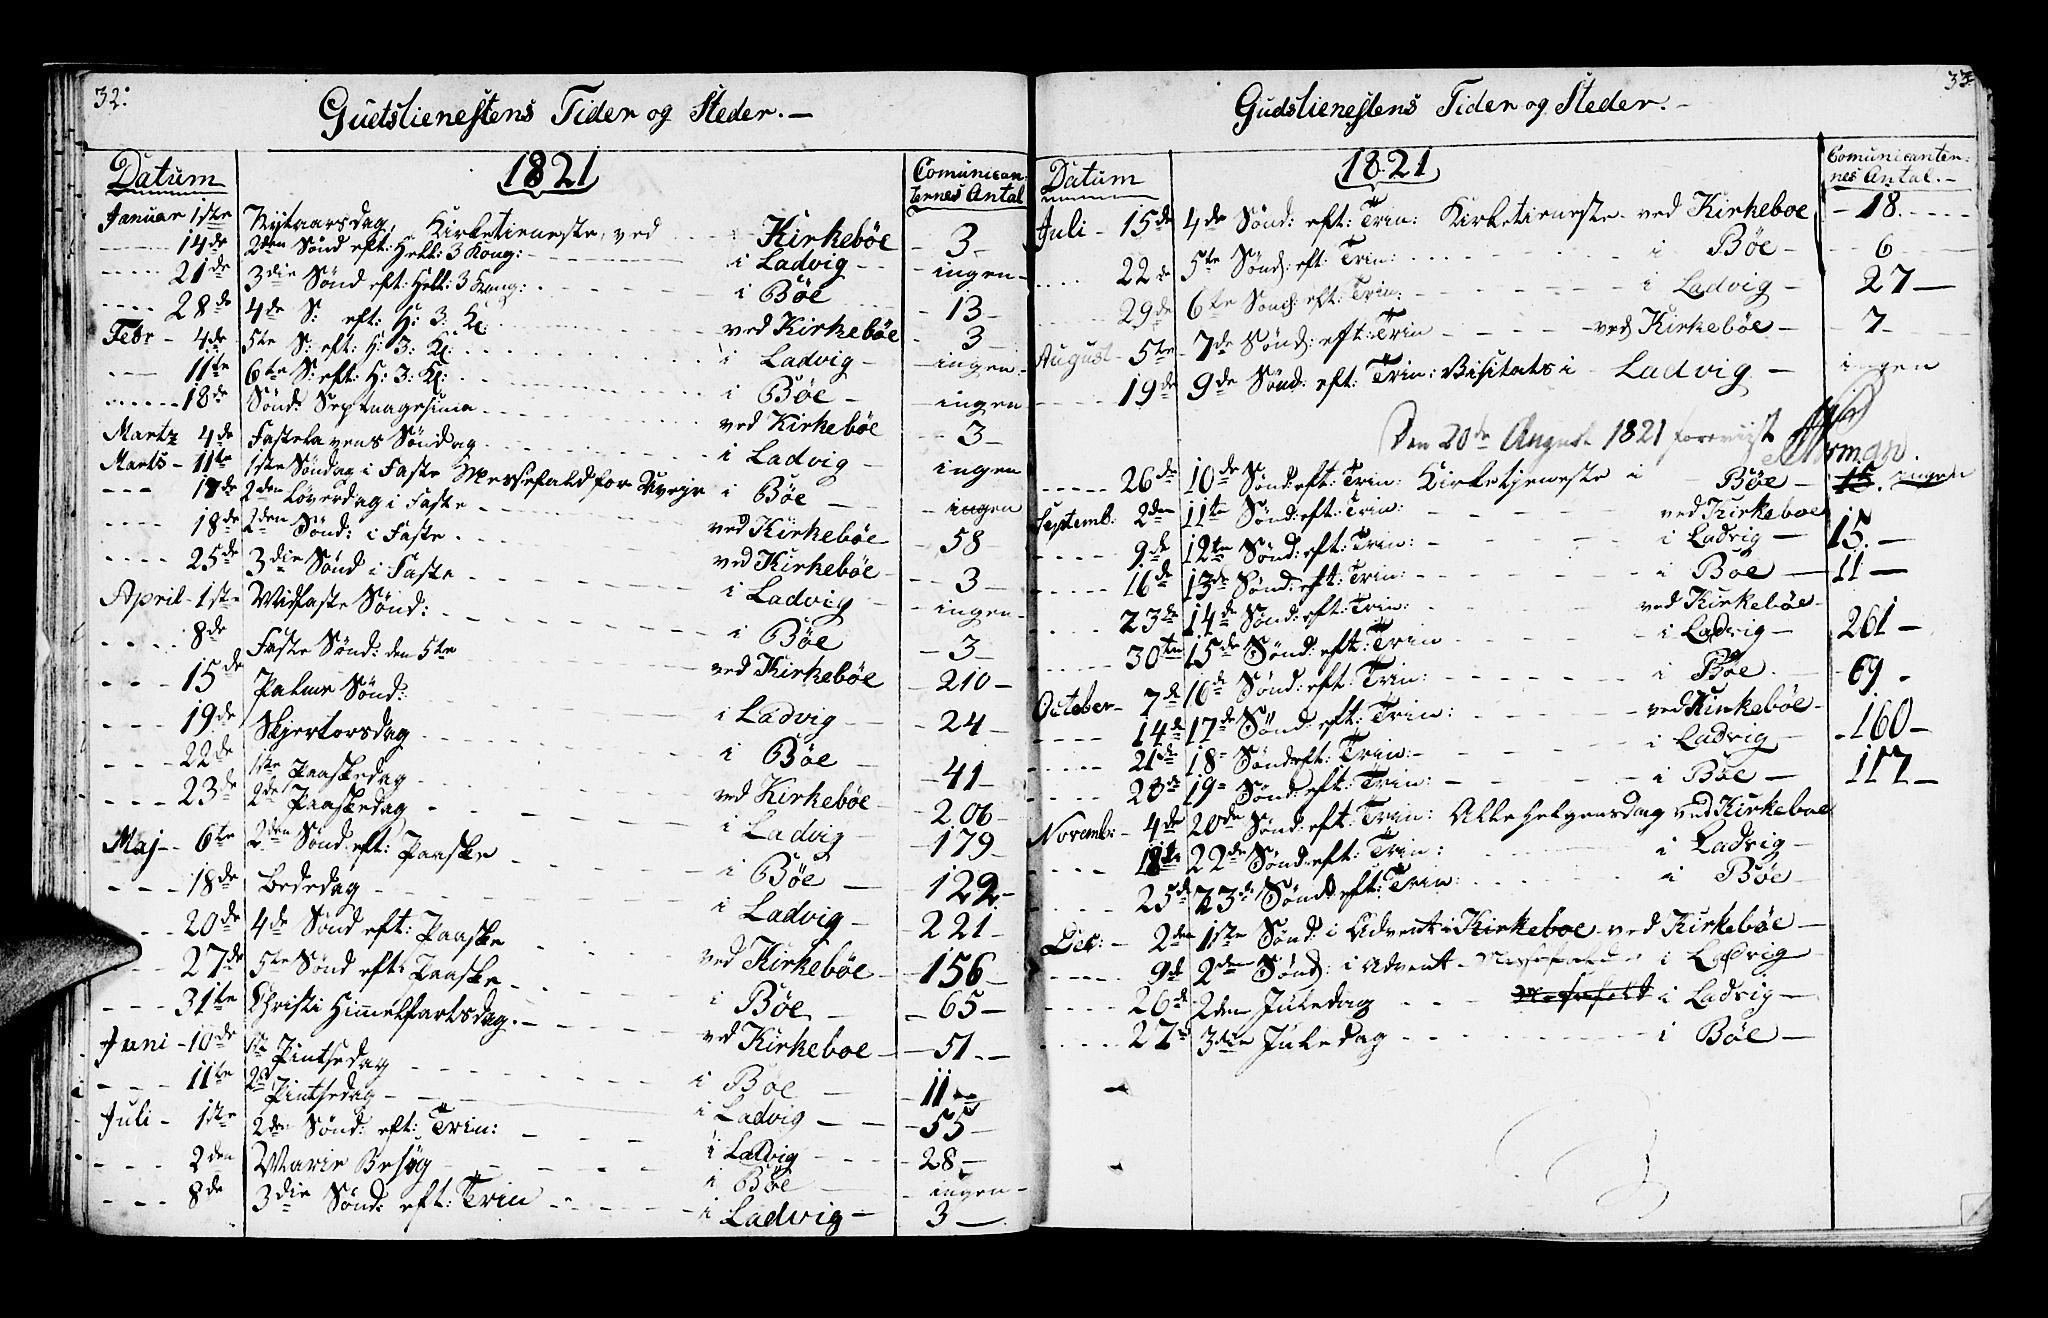 32.
Gudstienestens Tider og Steder.
Datum 1821 Comunican-
ternes Antal
Januar 1ste Nytaarsdag, Kirketieneste ved Kirkeböe 3
14de 2den Sönd eft: Hell: 3 Kong: i Ladvig ingen
21de 3die Sönd eft: Hell: 3 Kong: i Böe
28de 4de S: eft: H: 3: K: ved Kirkebøe 13
Febr 4de 5te S: eft: H: 3: K: i Ladvig 3
11te 6te S: eft: H: 3: K: i Bøe ingen
18de Sönd: Septuagesima ved Kirkebøe ingen
Martz 4de Fastelavens Söndag i Ladvig 3
Marts 11te 1ste Söndag i Faste Messefald for Uvejr i Bøe ingen
17de 2den Löverdag i Faste ved Kirkebøe ingen
18de 2den Sönd: i Faste ved Kirkebøe 58
25de 3die Sönd i Faste i Ladvig 3
April 1ste Midfaste Sönd: i Bøe ingen
8de Faste Sönd: den 5te ved Kirkebøe 3
15de Palme Sönd: i Ladvig 210
19de Skjertorsdag i Bøe 24
22de 1ste Paaskedag ved Kirkebøe 41
23de 2de Paaskedag i Ladvig 206
Maj 6te 2den Sönd eft: Paaske i Bøe 179
18de Bededag i Ladvig 122
20de 4de Sönd eft: Paaske ved Kirkebøe 221
27de 5te Sönd eft: Paaske i Bøe 156
31te Christi Himmelfartsdag. ved Kirkeboe 65
Juni 10de 1ste Pintsedag i Boe 51
11te 2de Pintsedag i Ladvig 11
Juli 1ste 2den Sönd: eft: Trin: i Ladvig 55
2den Marie Besøg i Bøe 28
8de 3die Sönd: eft: Trin i Ladvig ingen
3
33
Gudstienestens Tider og Steder.
Datum 1821 Comunicanter-
nes Antal.
Juli 15de 4de Sönd: eft: Trin: Kirketieneste ved Kirkeboe 18
22de 5te Sönd: eft: Trin: i Bøe 6
29de 6te Sönd: eft: Trin: i Ladvig 27
August 5te 7de Sönd: eft: Trin ved Kirkebøe 7
19de 9de Sönd: eft: Trin: Visitats i Ladvig ingen
Den 20de August 1821 foreviist
26de 10de Sönd: eft: Trin: Kirketjeneste i Bøe ingen
Septemb: 2den 11te Sönd: eft: Trin: ved Kirkeboe
9de 12te Sönd: eft: Trin: i Ladvig 15
16de 13de Sönd: eft: Trin: i Boe 11
23de 14de Sönd: eft: Trin: ved Kirkebøe
30te 15de Sönd: eft: Trin i Ladvig 261
October 7de 16de Sönd: eft: Trin: i Bøe 69
14de 17de Sönd: eft: Trin: ved Kirkebøe 160
21de 18 Sönd: eft: Trin: i Ladvig
28de 19 Sönd: eft: Trin: i Bøe 117
Novemb: 4de 20de Sönd: eft: Trin: Alle Helgensdag ved Kirkeboe
18te 22de Sönd: eft: Trin: i Ladvig
25de 23de Sönd: eft: Trin: i Bøe
Dec: 2den 1ste Sönd: i Advent i Kirkeboe ved Kirkebøe
9de 2den Sönd: i Advent Messefald i Ladvig
26de 2den Juledag Messefald i Ladvig
27de 3die Juledag i Bøe